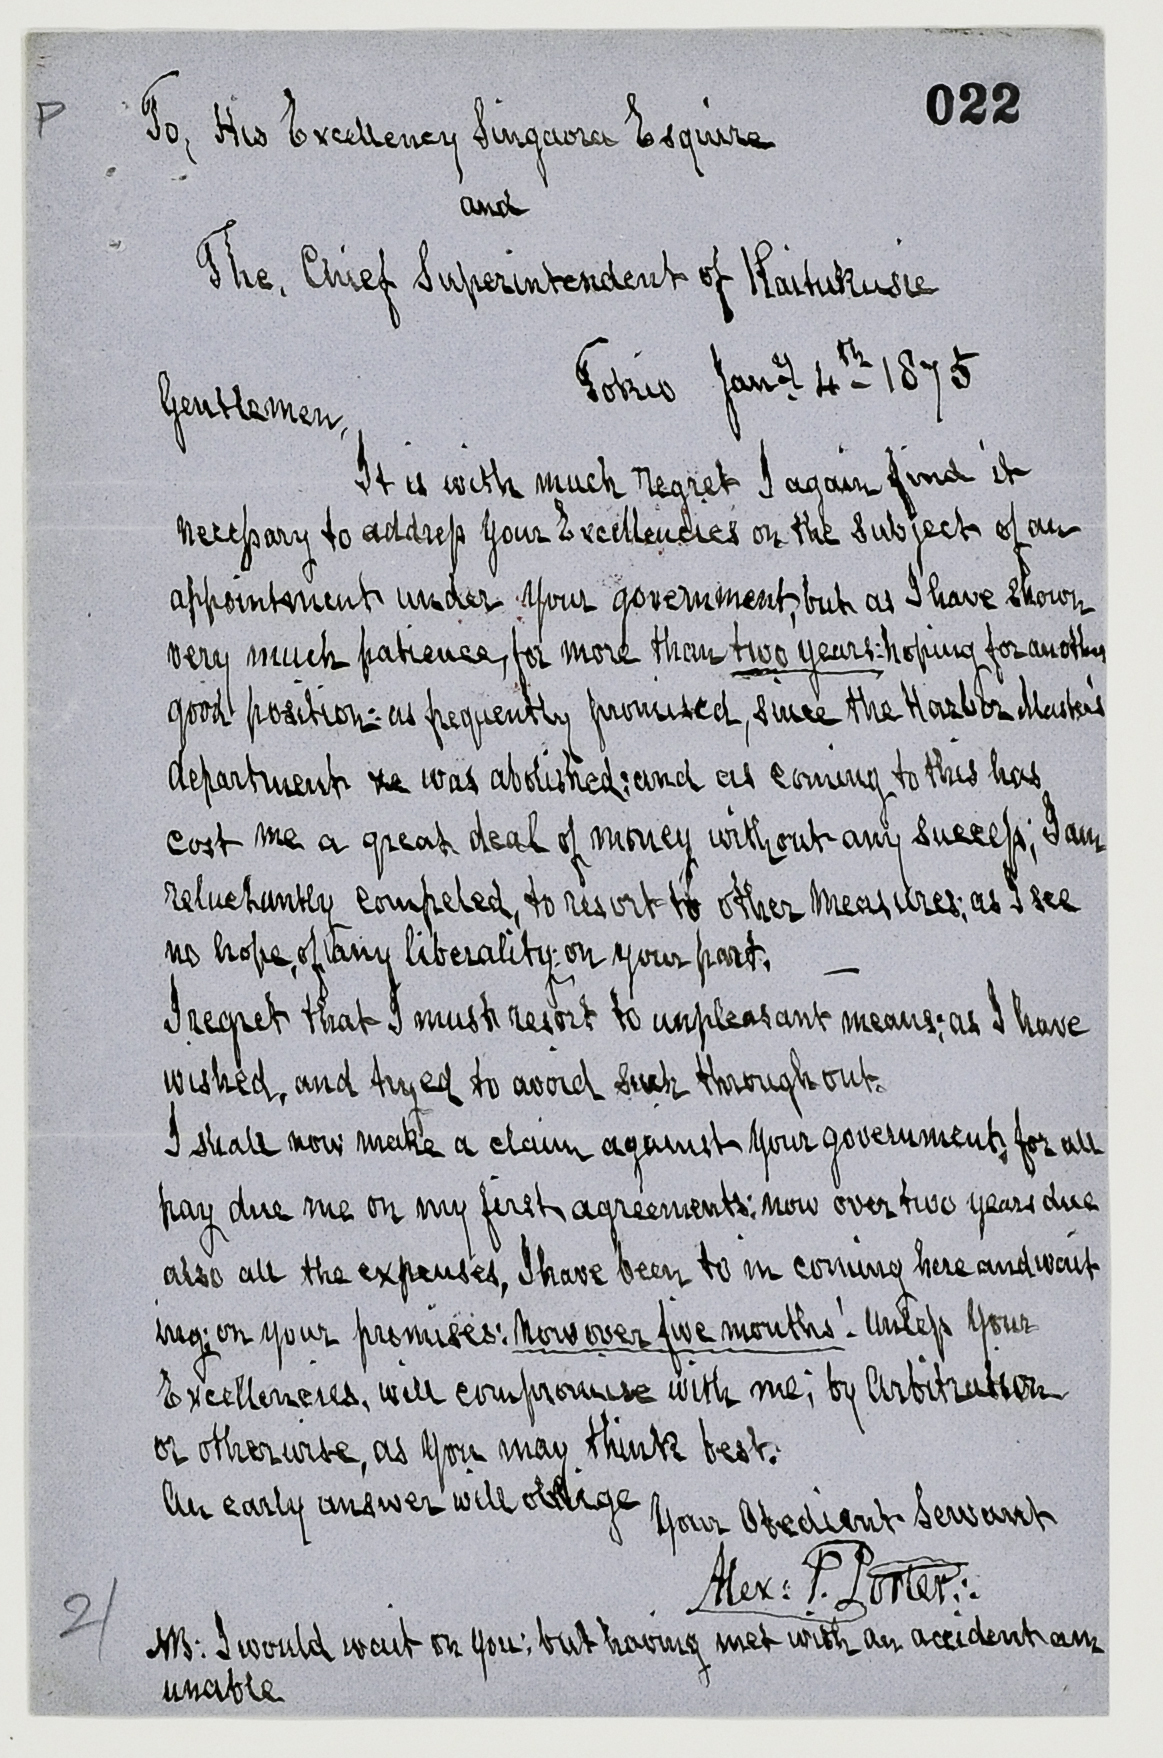 P
022
To, His Excellency Singaora Esquire
and
The, Chief Superintendent of Kaitukusie
Tokio Jany 4th 1875
Gentlemen,
It is with much regret I again find it
necessary to address your Excellencies on the subject of an
appointment under your government, but as I have shown
very much patience, for more than two years: hoping for another
good position: as frequently promised, since the Harbor Master's
department was abolished: and as coming to this has
cost me a great deal of money without any success; I am
reluctantly compeled, to resort to other measures; as I see
no hope, of any liberality: on your part.
I regret that I must resort to unpleasant means; as I have
wished, and tryed to avoid such throughout.
I shall now make a claim against your government, for all
pay due me on my first agreements: now over two years due
also all the expenses, I have been to in coming here and wait
ing; on your promises: now over five months! Unless Your
Excellencies, will compromise with me; by Arbitration
or otherwise, as you may think best.
An early answer will oblige
Your Obedient Servant
Alex: P. Porter:
NB: I would wait on you; but having met with an accident am
unable
21